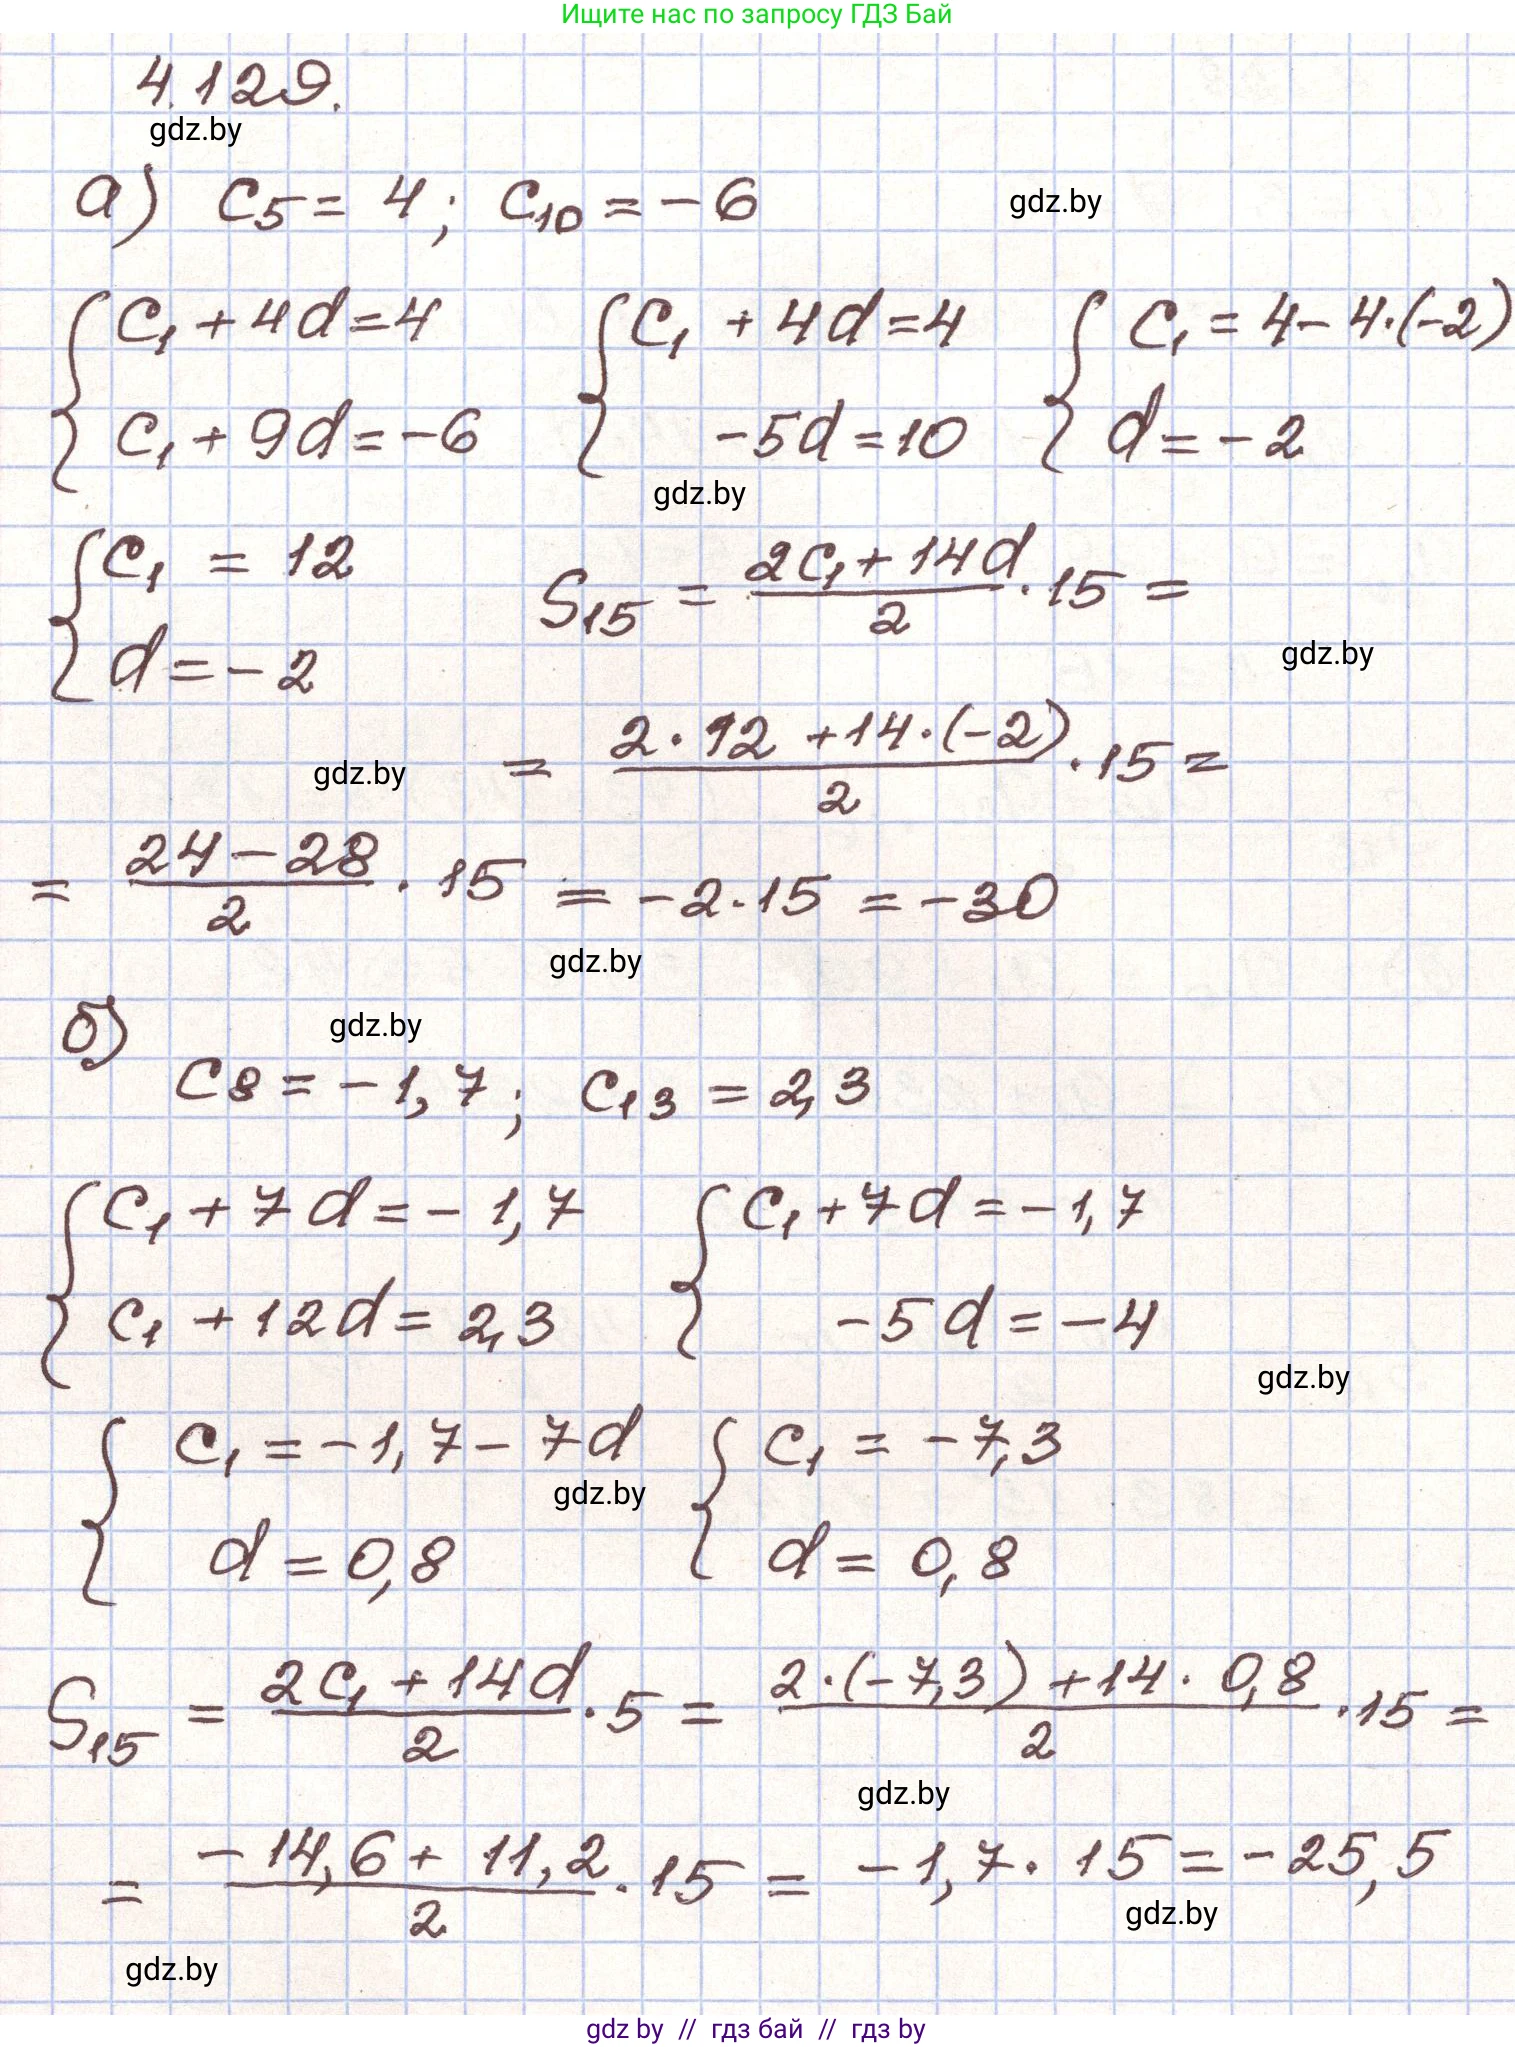 Ищите нас по запросу ГДЗ Бай
4.129.
gdz.by
а) c₅ = 4; c₁₀ = -6
gdz.by
{ c₁ + 4d = 4 { c₁ + 4d = 4 { c₁ = 4 - 4·(-2)
c₁ + 9d = -6 -5d = 10 d = -2
gdz.by
{ c₁ = 12 S₁₅ = (2c₁ + 14d)/2 · 15 =
d = -2
gdz.by
gdz.by = (2·12 + 14·(-2))/2 · 15 =
= (24 - 28)/2 · 15 = -2·15 = -30
gdz.by
б) gdz.by
c₈ = -1,7; c₁₃ = 2,3
{ c₁ + 7d = -1,7 { c₁ + 7d = -1,7
c₁ + 12d = 2,3 -5d = -4
gdz.by
{ c₁ = -1,7 - 7d { c₁ = -7,3
gdz.by
d = 0,8 d = 0,8
S₁₅ = (2c₁ + 14d)/2 · 5 = (2·(-7,3) + 14·0,8)/2 · 15 =
gdz.by
= (-14,6 + 11,2)/2 · 15 = -1,7 · 15 = -25,5
gdz.by
gdz.by
gdz by // гдз бай // гдз by